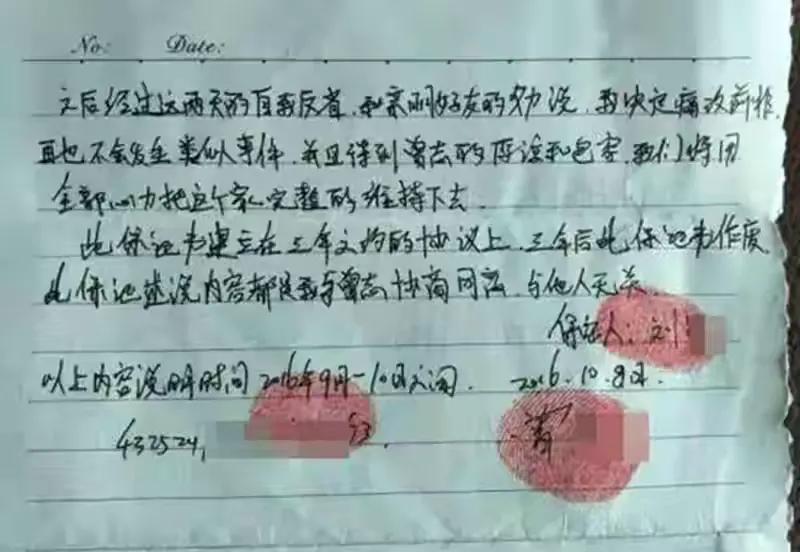 No: Date:
之后经过这两天的自我反省，和亲朋好友的劝说，我决定痛改前非，
再也不会发生类似事件，并且得到曾志的原谅和包容，我们将用
全部心力把这个家完整的维持下去。
此保证书建立在三年之约的协议上，三年后此保证书作废，
此保证述说内容都是我与曾志协商同意，与他人无关。
保证人：刘
以上内容说明时间2016年9月－10月之间. 2016.10.8日.
432524,
曾